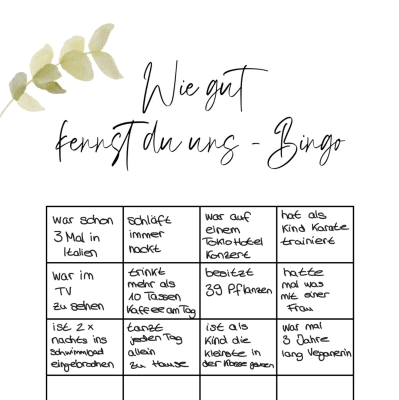 Wie gut
kennst du uns - Bingo
war schon
3 Mal in
Italien
schläft
immer
nackt
war auf
einem
Tokio Hotel
Konzert
hat als
Kind Karate
trainiert
war im
TV
zu sehen
trinkt
mehr als
10 Tassen
Kaffee am Tag
besitzt
39 Pflanzen
hatte
mal was
mit einer
Frau
ist 2x
nachts ins
Schwimmbad
eingebrochen
tanzt
jeden Tag
allein
zu Hause
ist als
Kind die
kleinste in
der Klasse gewesen
war mal
3 Jahre
lang Veganerin